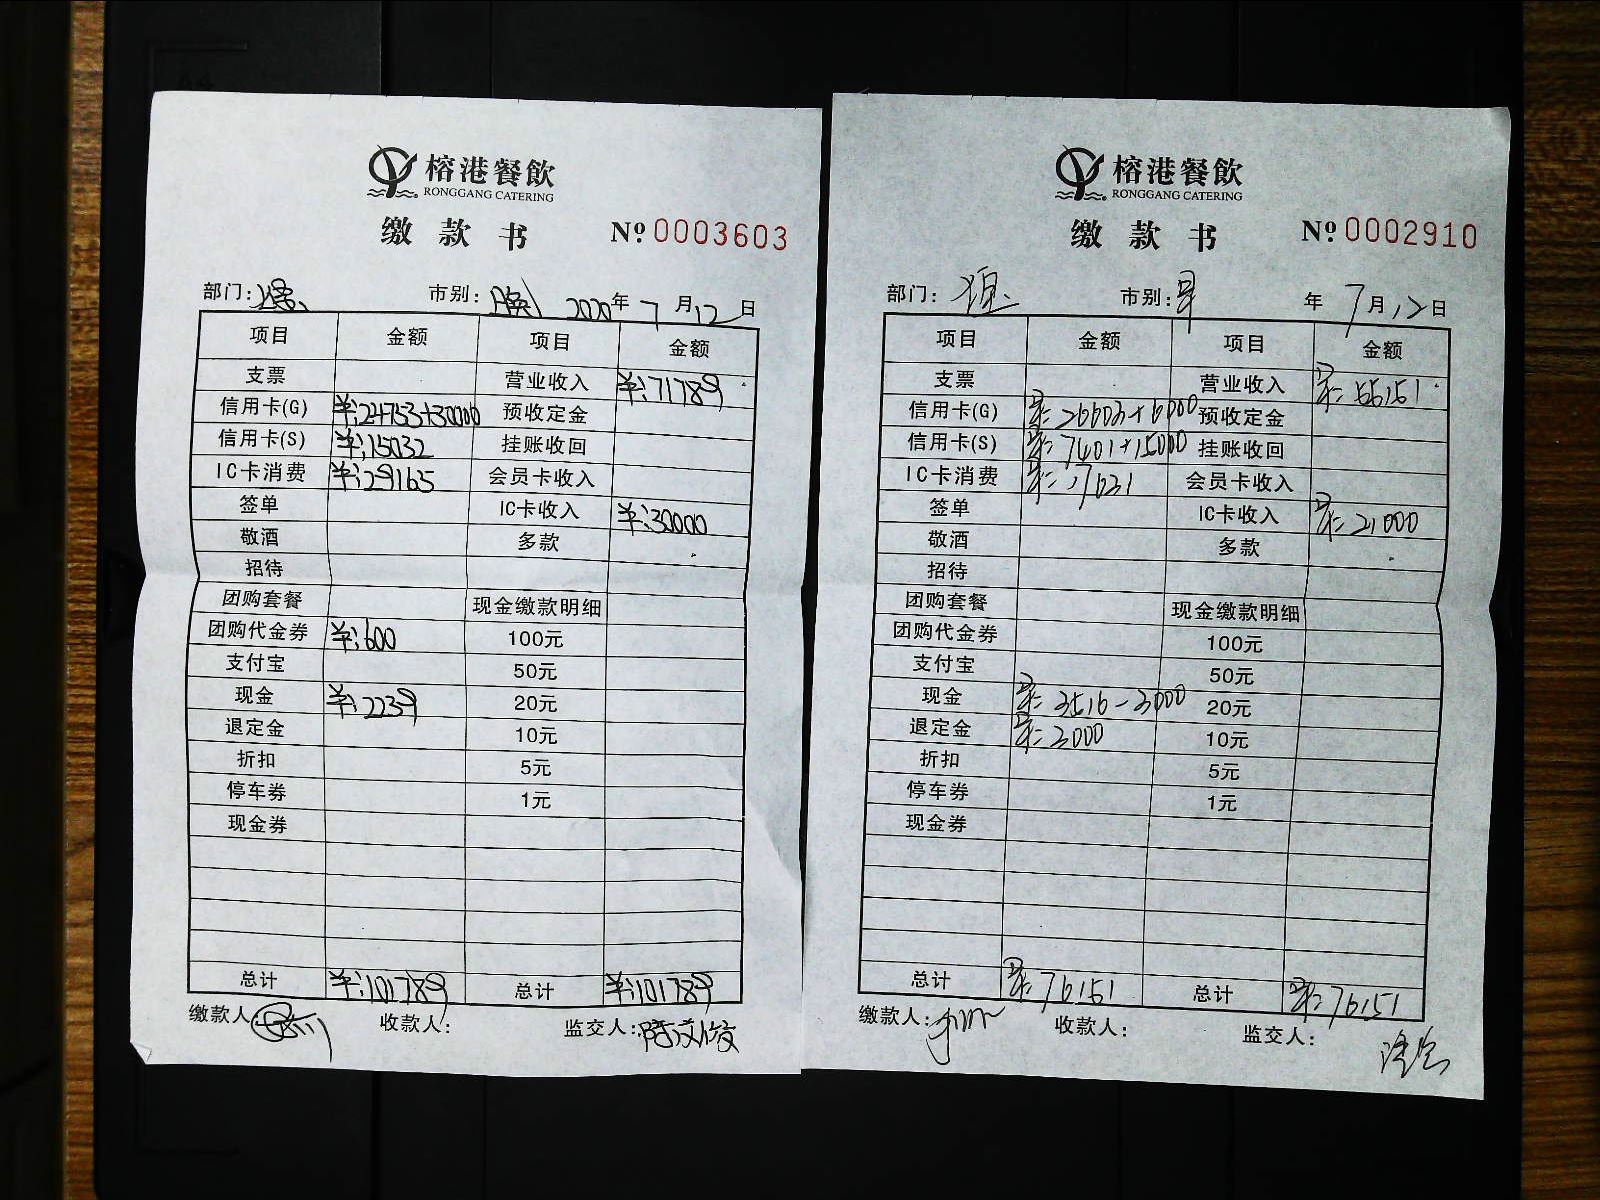 榕港餐飲
RONGGANG CATERING
缴款书 Nº 0003603
部门: 市别: 晚 2020年7月12日
项目 金额 项目 金额
支票 营业收入 ¥:71789
信用卡(G) ¥:24753+30000 预收定金
信用卡(S) ¥:15032 挂账收回
IC卡消费 ¥:29165 会员卡收入
签单 IC卡收入 ¥:30000
敬酒 多款
招待
团购套餐 现金缴款明细
团购代金券 ¥:600 100元
支付宝 50元
现金 ¥:2239 20元
退定金 10元
折扣 5元
停车券 1元
现金券
总计 ¥:101789 总计 ¥:101789
缴款人: 收款人: 监交人:
榕港餐飲
RONGGANG CATERING
缴款书 Nº 0002910
部门: 市别: 早 年7月12日
项目 金额 项目 金额
支票 营业收入 ¥:55151
信用卡(G) ¥:26603+6000 预收定金
信用卡(S) ¥:7401+15000 挂账收回
IC卡消费 ¥:17631 会员卡收入
签单 IC卡收入 ¥:21000
敬酒 多款
招待
团购套餐 现金缴款明细
团购代金券 100元
支付宝 50元
现金 ¥:3516-3000 20元
退定金 ¥:3000 10元
折扣 5元
停车券 1元
现金券
总计 ¥:76151 总计 ¥:76151
缴款人: 收款人: 监交人: